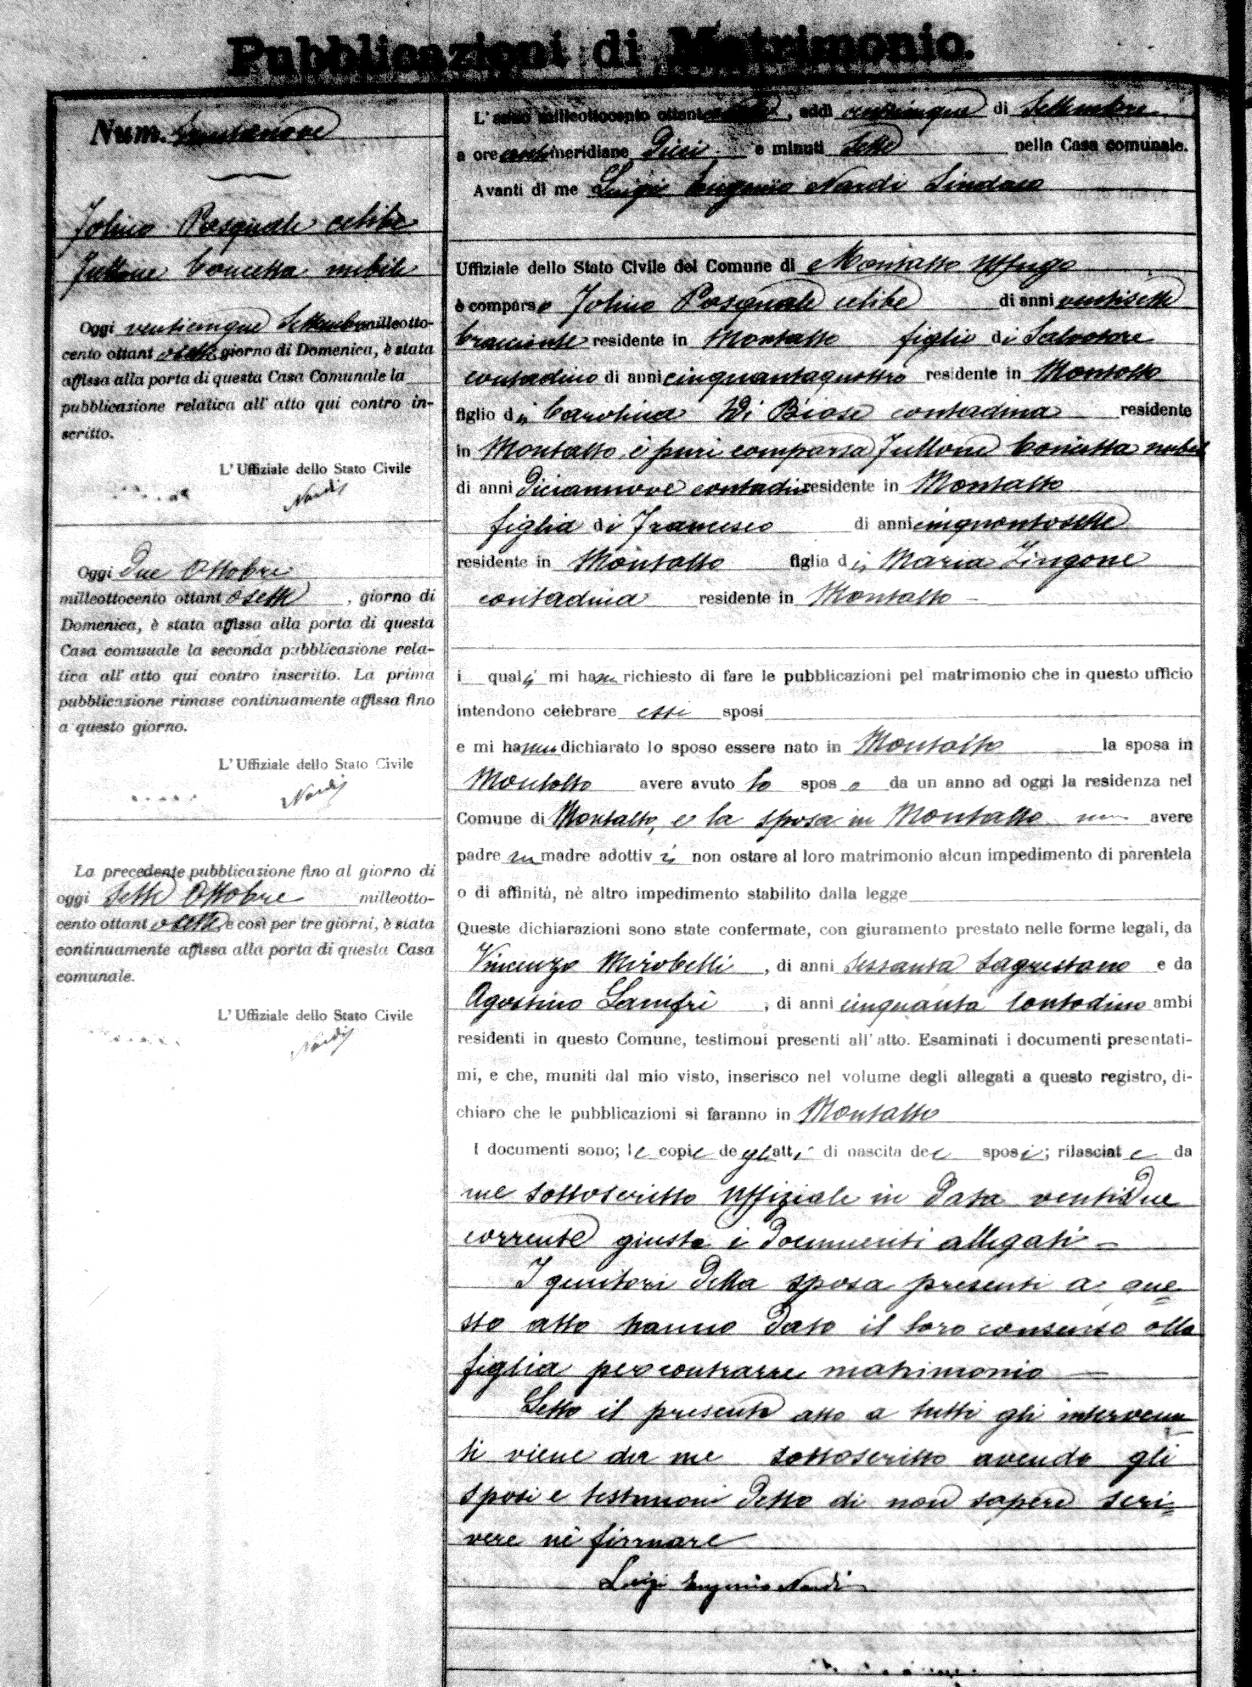 Pubblicazioni di Matrimonio.
Num. Trentanove
Jolino Pasquale celibe
Jullone Concetta nubile
Oggi venticinque Settembre milleotto-
cento ottantosette giorno di Domenica, è stata
affissa alla porta di questa Casa Comunale la
pubblicazione relativa all' atto qui contro in-
scritto.
L' Uffiziale dello Stato Civile
Nardi
Oggi Due Ottobre
milleottocento ottantosette, giorno di
Domenica, è stata affissa alla porta di questa
Casa comunale la seconda pubblicazione rela-
tiva all' atto qui contro inscritto. La prima
pubblicazione rimase continuamente affissa fino
a questo giorno.
L' Uffiziale dello Stato Civile
Nardi
La precedente pubblicazione fino al giorno di
oggi Sette Ottobre milleotto-
cento ottantosette e così per tre giorni, è stata
continuamente affissa alla porta di questa Casa
comunale.
L' Uffiziale dello Stato Civile
Nardi
L' anno milleottocento ottantosette, addì venticinque di Settembre
a ore antimeridiane Dieci e minuti Sette nella Casa comunale.
Avanti di me Luigi Eugenio Nardi Sindaco
Uffiziale dello Stato Civile del Comune di Montalto Uffugo
è comparso Jolino Pasquale celibe di anni ventisette
bracciante residente in Montalto figlio di Salvatore
contadino di anni cinquantaquattro residente in Montalto
figlio di Carolina Di Biase contadina residente
in Montalto è pure comparsa Jullone Concetta nubile
di anni Diciannove contadina residente in Montalto
figlia di Francesco di anni cinquantasette
residente in Montalto figlia di Maria Zingone
contadina residente in Montalto
i quali mi hanno richiesto di fare le pubblicazioni pel matrimonio che in questo ufficio
intendono celebrare essi sposi
e mi hanno dichiarato lo sposo essere nato in Montalto la sposa in
Montalto avere avuto lo sposo da un anno ad oggi la residenza nel
Comune di Montalto, e la sposa in Montalto non avere
padre nè madre adottivi non ostare al loro matrimonio alcun impedimento di parentela
o di affinità, nè altro impedimento stabilito dalla legge
Queste dichiarazioni sono state confermate, con giuramento prestato nelle forme legali, da
Vincenzo Mirabelli, di anni sessanta Sagrestano e da
Agostino Lanfri, di anni cinquanta Contadino ambi
residenti in questo Comune, testimoni presenti all' atto. Esaminati i documenti presentati-
mi, e che, muniti dal mio visto, inserisco nel volume degli allegati a questo registro, di-
chiaro che le pubblicazioni si faranno in Montalto
I documenti sono; le copie degli atti di nascita dei sposi; rilasciate da
me sottoscritto Uffiziale in Data ventidue
corrente giusta i Documenti allegati -
I genitori della sposa presenti a que=
sto atto hanno Dato il loro consenso alla
figlia per contrarre matrimonio
Letto il presente atto a tutti gli intervenu=
ti viene da me sottoscritto avendo gli
sposi e testimoni Detto di non sapere scri=
vere nè firmare
Luigi Eugenio Nardi